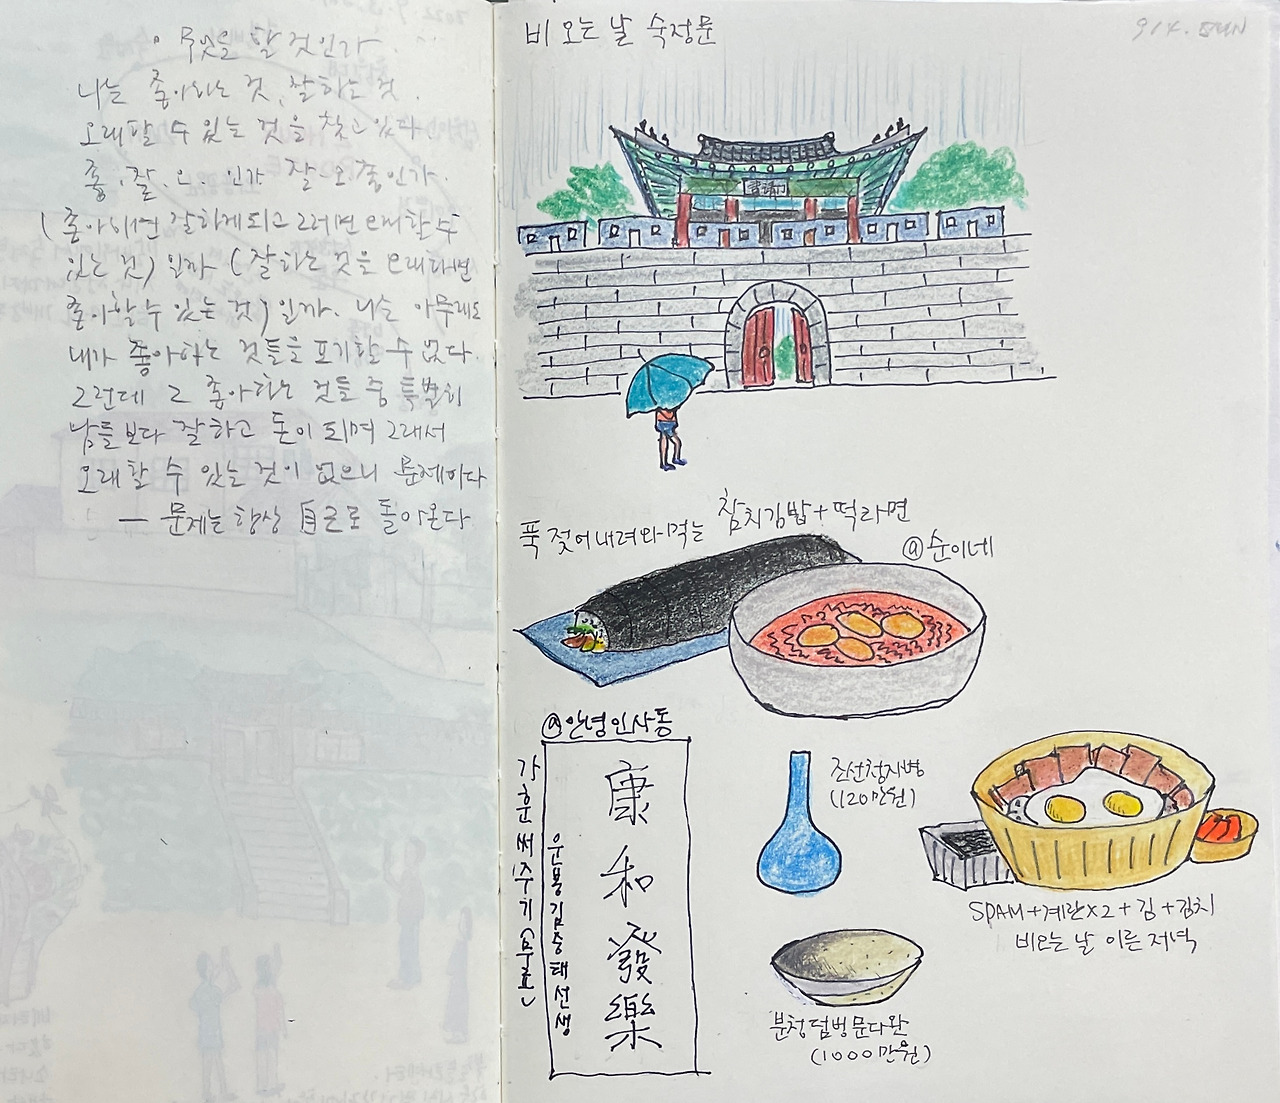 무엇을 할 것인가.
나는 좋아하는 것, 잘하는 것.
오래할 수 있는 것을 찾고 있다
좋.잘.오. 인가 잘.오.좋인가.
(좋아하면 잘하게되고 그러면 오래할 수
있는 것)인가 (잘하는 것을 오래하면
좋아할 수 있는 것)인가. 나는 아무래도
내가 좋아하는 것들을 포기할 수 없다.
그런데 그 좋아하는 것들 중 특별히
남들보다 잘하고 돈이 되며 그래서
오래할 수 있는 것이 없으니 문제이다
— 문제는 항상 自근로 돌아온다
비 오는 날 숙정문
914. SUN
푹 젖어 내려와 먹는 참치김밥+떡라면
@순이네
@안녕인사동
가훈써주기(무료)
운봉김승태선생
康和發樂
조선청자병
(120만원)
SPAM+계란x2+김+김치
비오는 날 이른 저녁
분청덤벙문다완
(1000만원)